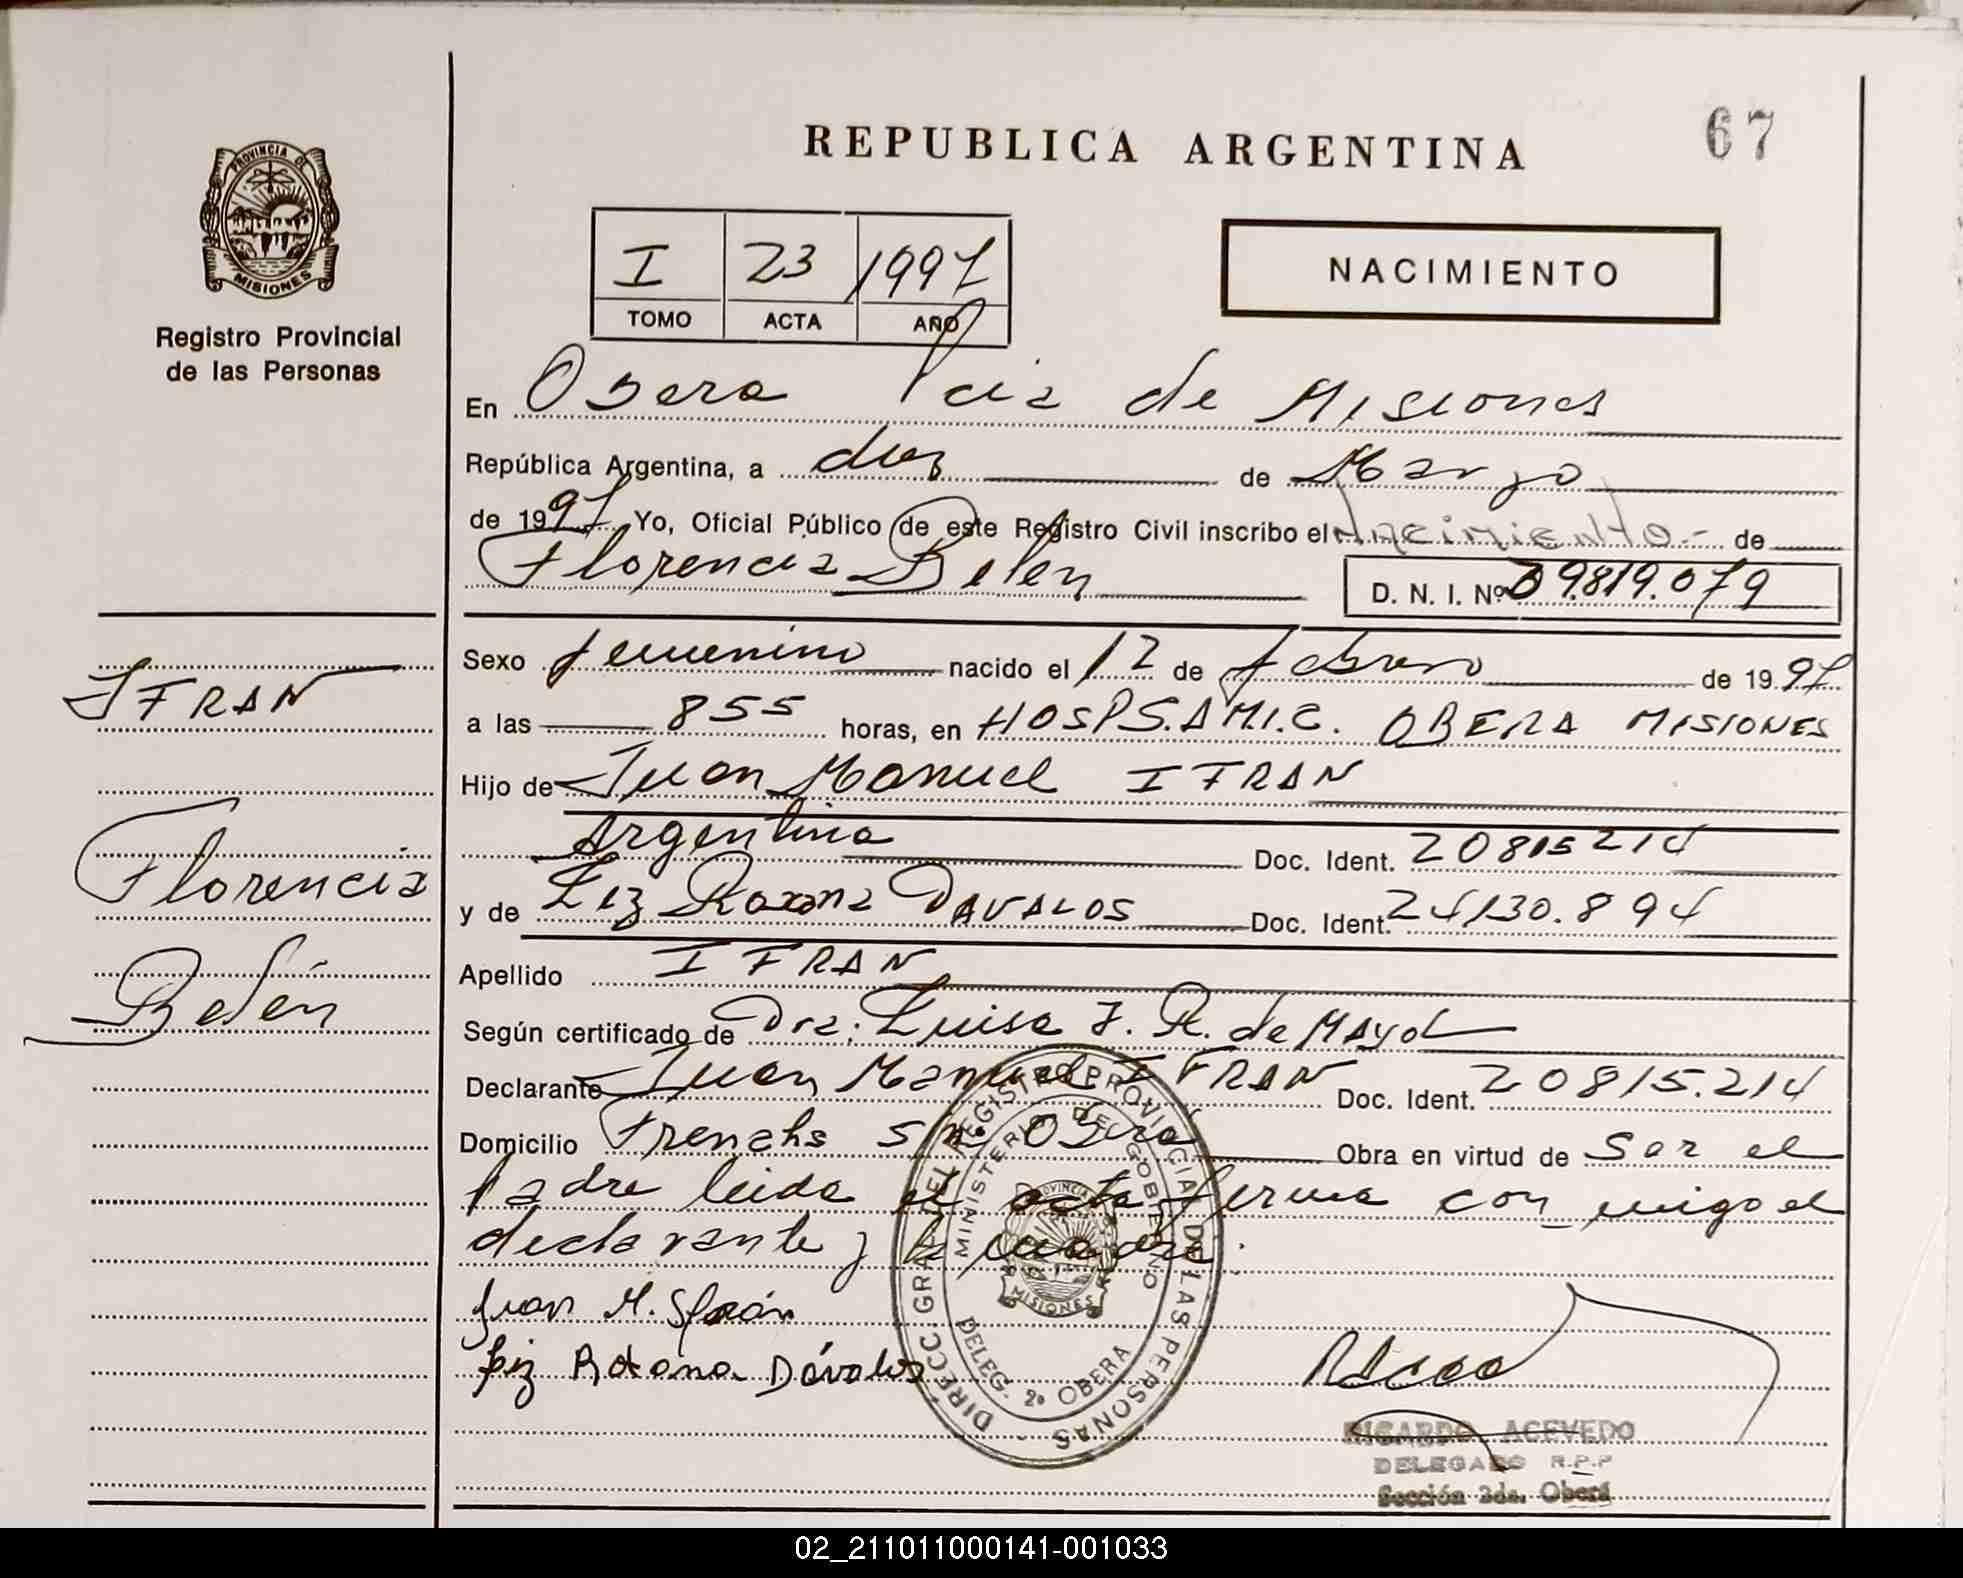 REPUBLICA ARGENTINA
67
PROVINCIA DE
MISIONES
Registro Provincial
de las Personas
I 23 1997
TOMO ACTA AÑO
NACIMIENTO
En Obera Pcia de Misiones
República Argentina, a diez de Marzo
de 1997 Yo, Oficial Público de este Registro Civil inscribo el Nacimiento.- de
Florencia Belen
D. N. I. Nº 39.819.079
Sexo femenino nacido el 12 de febrero de 1997
a las 855 horas, en HOSP S.A.M.I.C. OBERA MISIONES
Hijo de Juan Manuel IFRAN
Argentina Doc. Ident. 20815214
y de Liz Roxana DAVALOS Doc. Ident. 24130.894
Apellido IFRAN
Según certificado de Dra: Luisa F. R. de MAYOL
Declarante Juan Manuel IFRAN Doc. Ident. 20815.214
Domicilio Frenchs s/n. Oberá Obra en virtud de ser el
padre leida el acta firma con migo el
declarante y la madre.
Juan M. Ifrán
Liz Roxana Dávalos
IFRAN
Florencia
Belén
DIRECC. GRAL. DEL REGISTRO PROVINCIAL DE LAS PERSONAS
MINISTERIO DE GOBIERNO
PROVINCIA
MISIONES
DELEG. 2º OBERA
RICARDO ACEVEDO
DELEGADO R.P.P
Sección 2da. Oberá
02_211011000141-001033